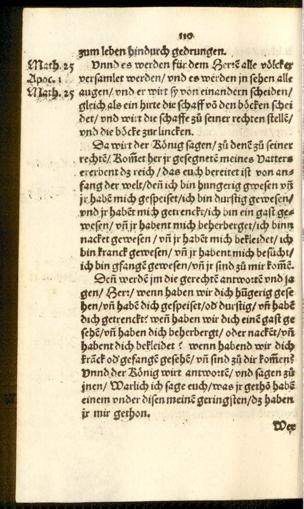 110
zum leben hindurch gedrungen.
Math. 25 Vnnd es werden für dem Herrē alle völcker
Apoc. 1 versamlet werden / vnd es werden jn sehen alle
Math. 25 augen / vnd er wirt sÿ von einandern scheiden /
gleich als ein hirte die schaff vō den böcken schei
det / vnd wirt die schaffe zů seiner rechten stellē /
vnd die böcke zur lincken.
Da wirt der König sagen / zů denē zů seiner
rechtē / Kom̄et her jr gesegnetē meines Vatters
ererbent dz reich / das euch bereitet ist von an-
fang der welt / deñ ich bin hungerig gewesen vñ
jr habē mich gespeiset / ich bin durstig gewesen /
vnd jr habēt mich getrenckt / ich bin ein gast ge-
wesen / vñ jr habent mich beherberget / ich binn
nacket gewesen / vñ jr habēt mich bekleidet / ich
bin kranck gewesen / vñ jr habent mich besücht /
ich bin gfangē gewesen / vñ jr sind zů mir kom̄ē.
Deñ werdē jm die gerechtē antwortē vnd sa
gen / Herr / wenn haben wir dich hūgerig gese
hen / vñ habē dich gespeiset / od' durstig / vñ habē
dich getrenckt? weñ haben wir dich einē gast ge
sehē / vñ haben dich beherbergt / oder nackēt / vñ
habent dich bekleidet? wenn habend wir dich
krāck od' gefangē gesehē / vñ sind zů dir kom̄en?
Vnnd der König wirt antwortē / vnd sagen zů
jnen / Warlich ich sage euch / was jr gethō habē
einem vnder disen meinē geringsten / dz haben
jr mir gethon.
Wer